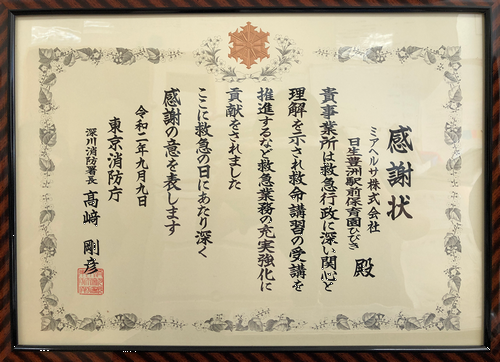 感謝状
ミアヘルサ株式会社
日生豊洲駅前保育園ひびき 殿
貴事業所は救急行政に深い関心と
理解を示され救命講習の受講を
推進するなど救急業務の充実強化に
貢献をされました
ここに救急の日にあたり深く
感謝の意を表します
令和二年九月九日
東京消防庁
深川消防署長 高﨑 剛彦